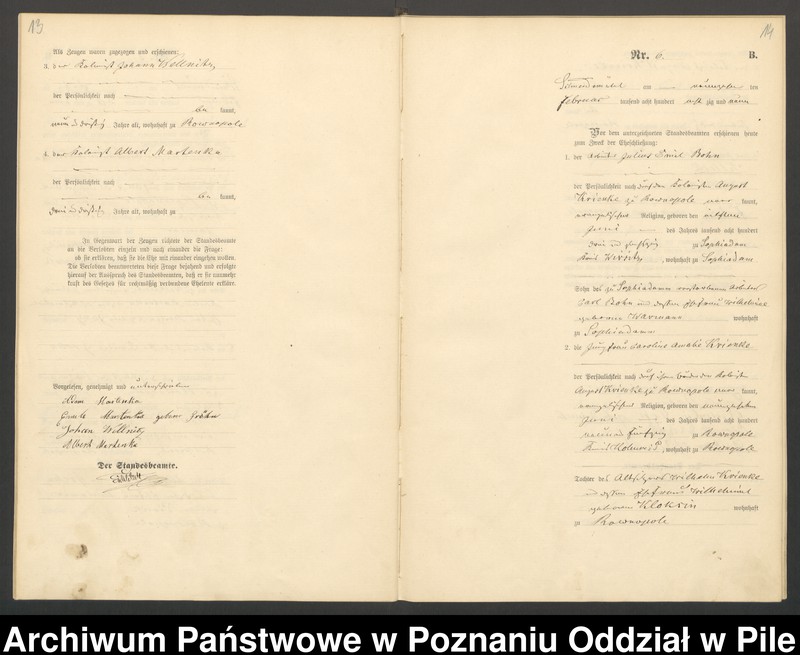 13
Als Zeugen waren zugezogen und erschienen:
3. der Kolonist Johann Wellnitz
der Persönlichkeit nach
kannt,
neun und dreißig Jahre alt, wohnhaft zu Rownopole
4. der Kolonist Albert Martenka
der Persönlichkeit nach
kannt,
drei und dreißig Jahre alt, wohnhaft zu
In Gegenwart der Zeugen richtete der Standesbeamte
an die Verlobten einzeln und nach einander die Frage:
ob sie erklären, daß sie die Ehe mit einander eingehen wollen.
Die Verlobten beantworteten diese Frage bejahend und erfolgte
hierauf der Ausspruch des Standesbeamten, daß er sie nunmehr
kraft des Gesetzes für rechtmäßig verbundene Eheleute erkläre.
Vorgelesen, genehmigt und unterschrieben
Martenka
geborne
Johann Wellnitz
Albert Martenka
Der Standesbeamte.
14
Nr. 6. B.
Schneidemühl am neunzehnten
Februar tausend acht hundert acht zig und neun
Vor dem unterzeichneten Standesbeamten erschienen heute
zum Zweck der Eheschließung:
1. der Arbeiter Julius Daniel Bohn
der Persönlichkeit nach durch den Kolonisten August
Krienke zu Rownopole kannt,
evangelischer Religion, geboren den
Juni des Jahres tausend acht hundert
drei und sechszig zu Sophiadam
Kreis Wirsitz, wohnhaft zu Sophiadam
Sohn des zu Sophiadamm verstorbenen Arbeiter
Carl Bohn und dessen Ehefrau Wilhelmine
geborenen Warmann wohnhaft
zu Sophiadamm
2. die Jungfrau Caroline Amalie Krienke
der Persönlichkeit nach durch ihren Bruder den Kolonist
August Krienke zu Rownopole kannt,
evangelischer Religion, geboren den neunzehnten
Juni des Jahres tausend acht hundert
zu Rownopole
Kreis Kolmar, wohnhaft zu Rownopole
Tochter des Altsitzers Wilhelm Krienke
und dessen Ehefrau Wilhelmine
geborenen Klokzin wohnhaft
zu Rownopole
Archiwum Państwowe w Poznaniu Oddział w Pile